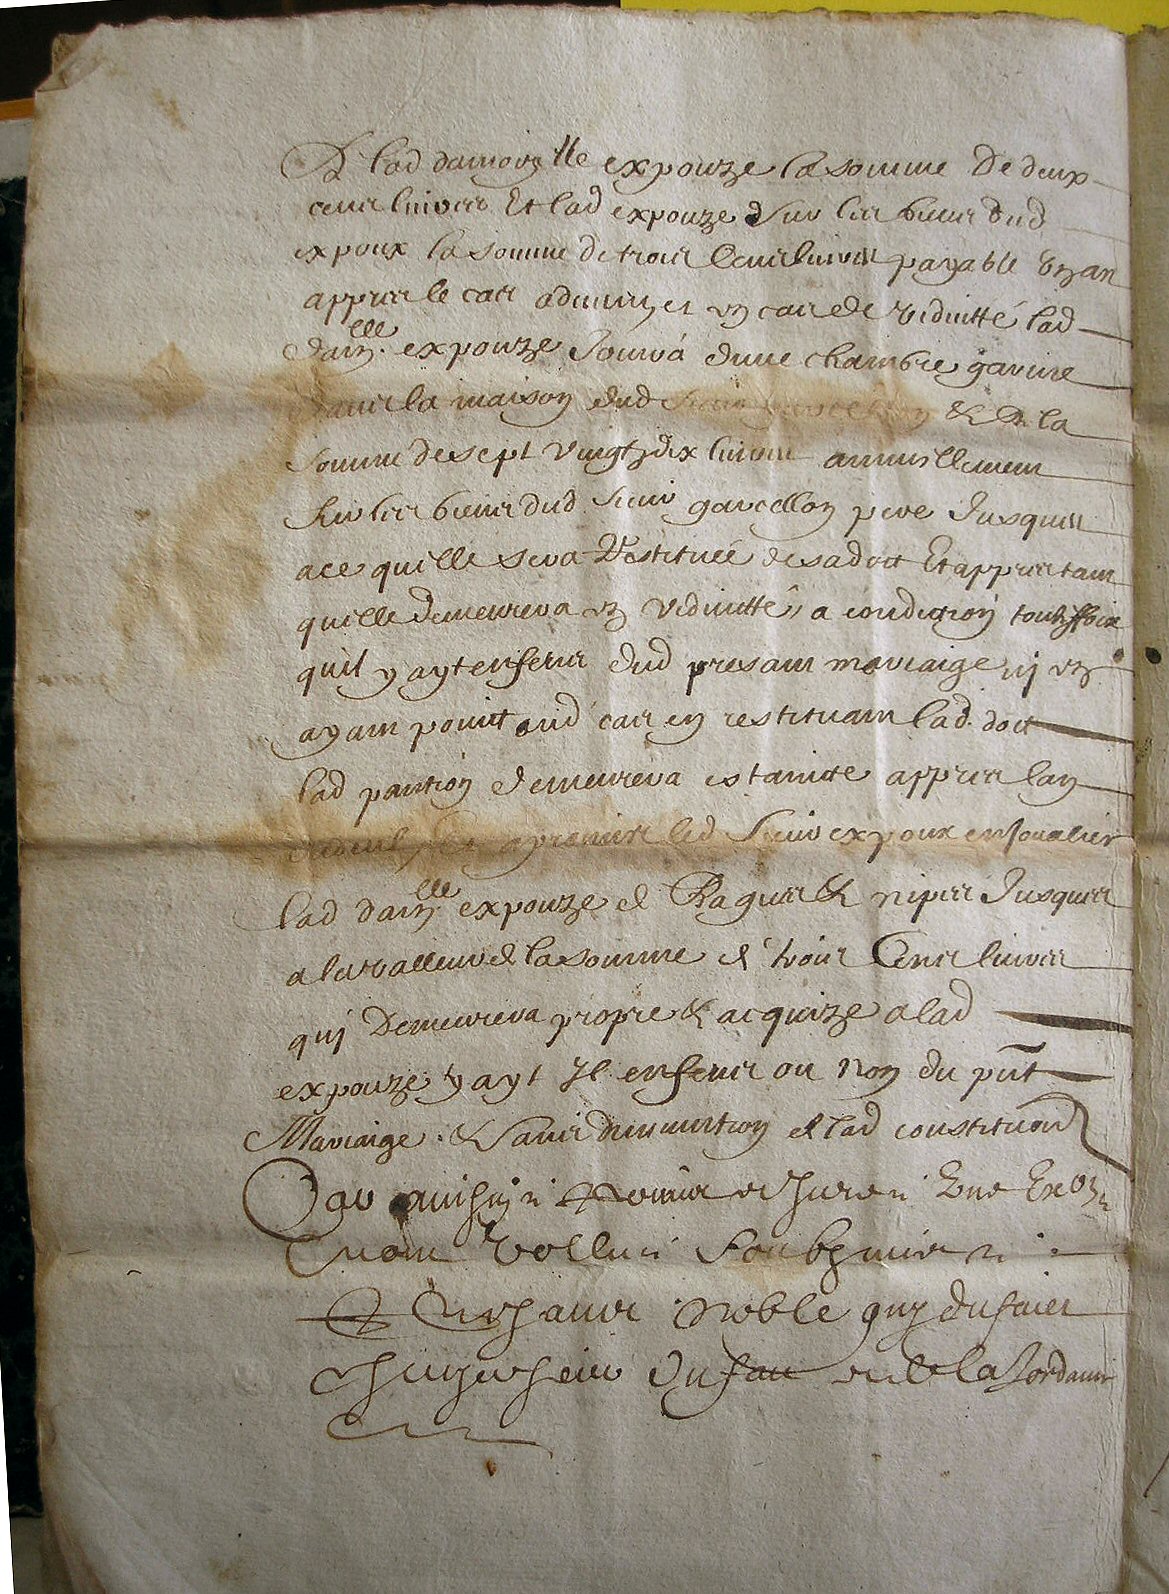 A lad damoyselle expouze la somme De deux
cens livres Et lad expouze Sur les biens dud
expoux la somme de trois cens livres payable un an
appres le cas advenu et en cas de viduitté lad
dam.elle expouze Jouira dune chambre garnie
dans la maison dud Sieur garcellon & de la
Somme de sept vingtz dix livres annuellemen
Sur les biens dud Sieur garcellon pere Jusques
a ce quelle sera Restituée de sa dot Et appres tam
quelle demeurera en viduitté, a condition touteffois
quil y ayt enfens dud presam mariaige nj en
ayam point aud cas en restituam lad. dot
lad pantion demeurera estainte appres lan
de deul, a promis led Sieur expoux enJoualier
lad dam.elle expouze de Bagues & nipes Jusques
a la valleur de la somme de trois Cens livres
quj Demeurera propre & acquize a lad
expouze y ayt Il enfens ou non du pnt
Mariaige. & sans diminution de lad constitution
Car ainsin
voulu Soubzmis
presans Noble guy dufaiet
Sieur Dufau de la Jordanie